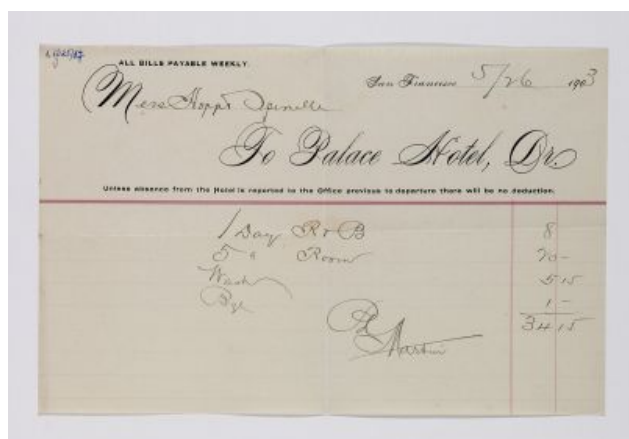 ALL BILLS PAYABLE WEEKLY.
San Francisco 5/26 1903
To Palace Hotel, Dr.
Unless absence from the Hotel is reported to the Office previous to departure there will be no deduction.
1 Day R & B 8
5 " Room 20 -
Wash 5 15
1 -
34 15
Pd
Martin